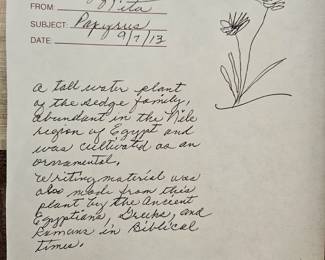 FROM: Rita
SUBJECT: Papyrus
DATE: 9/7/13
a tall water plant
of the sedge family,
abundant in the Nile
region of Egypt and
was cultivated as an
ornamental.
Writing material was
also made from this
plant by the Ancient
Egyptians, Greeks, and
Romans in Biblical
times.